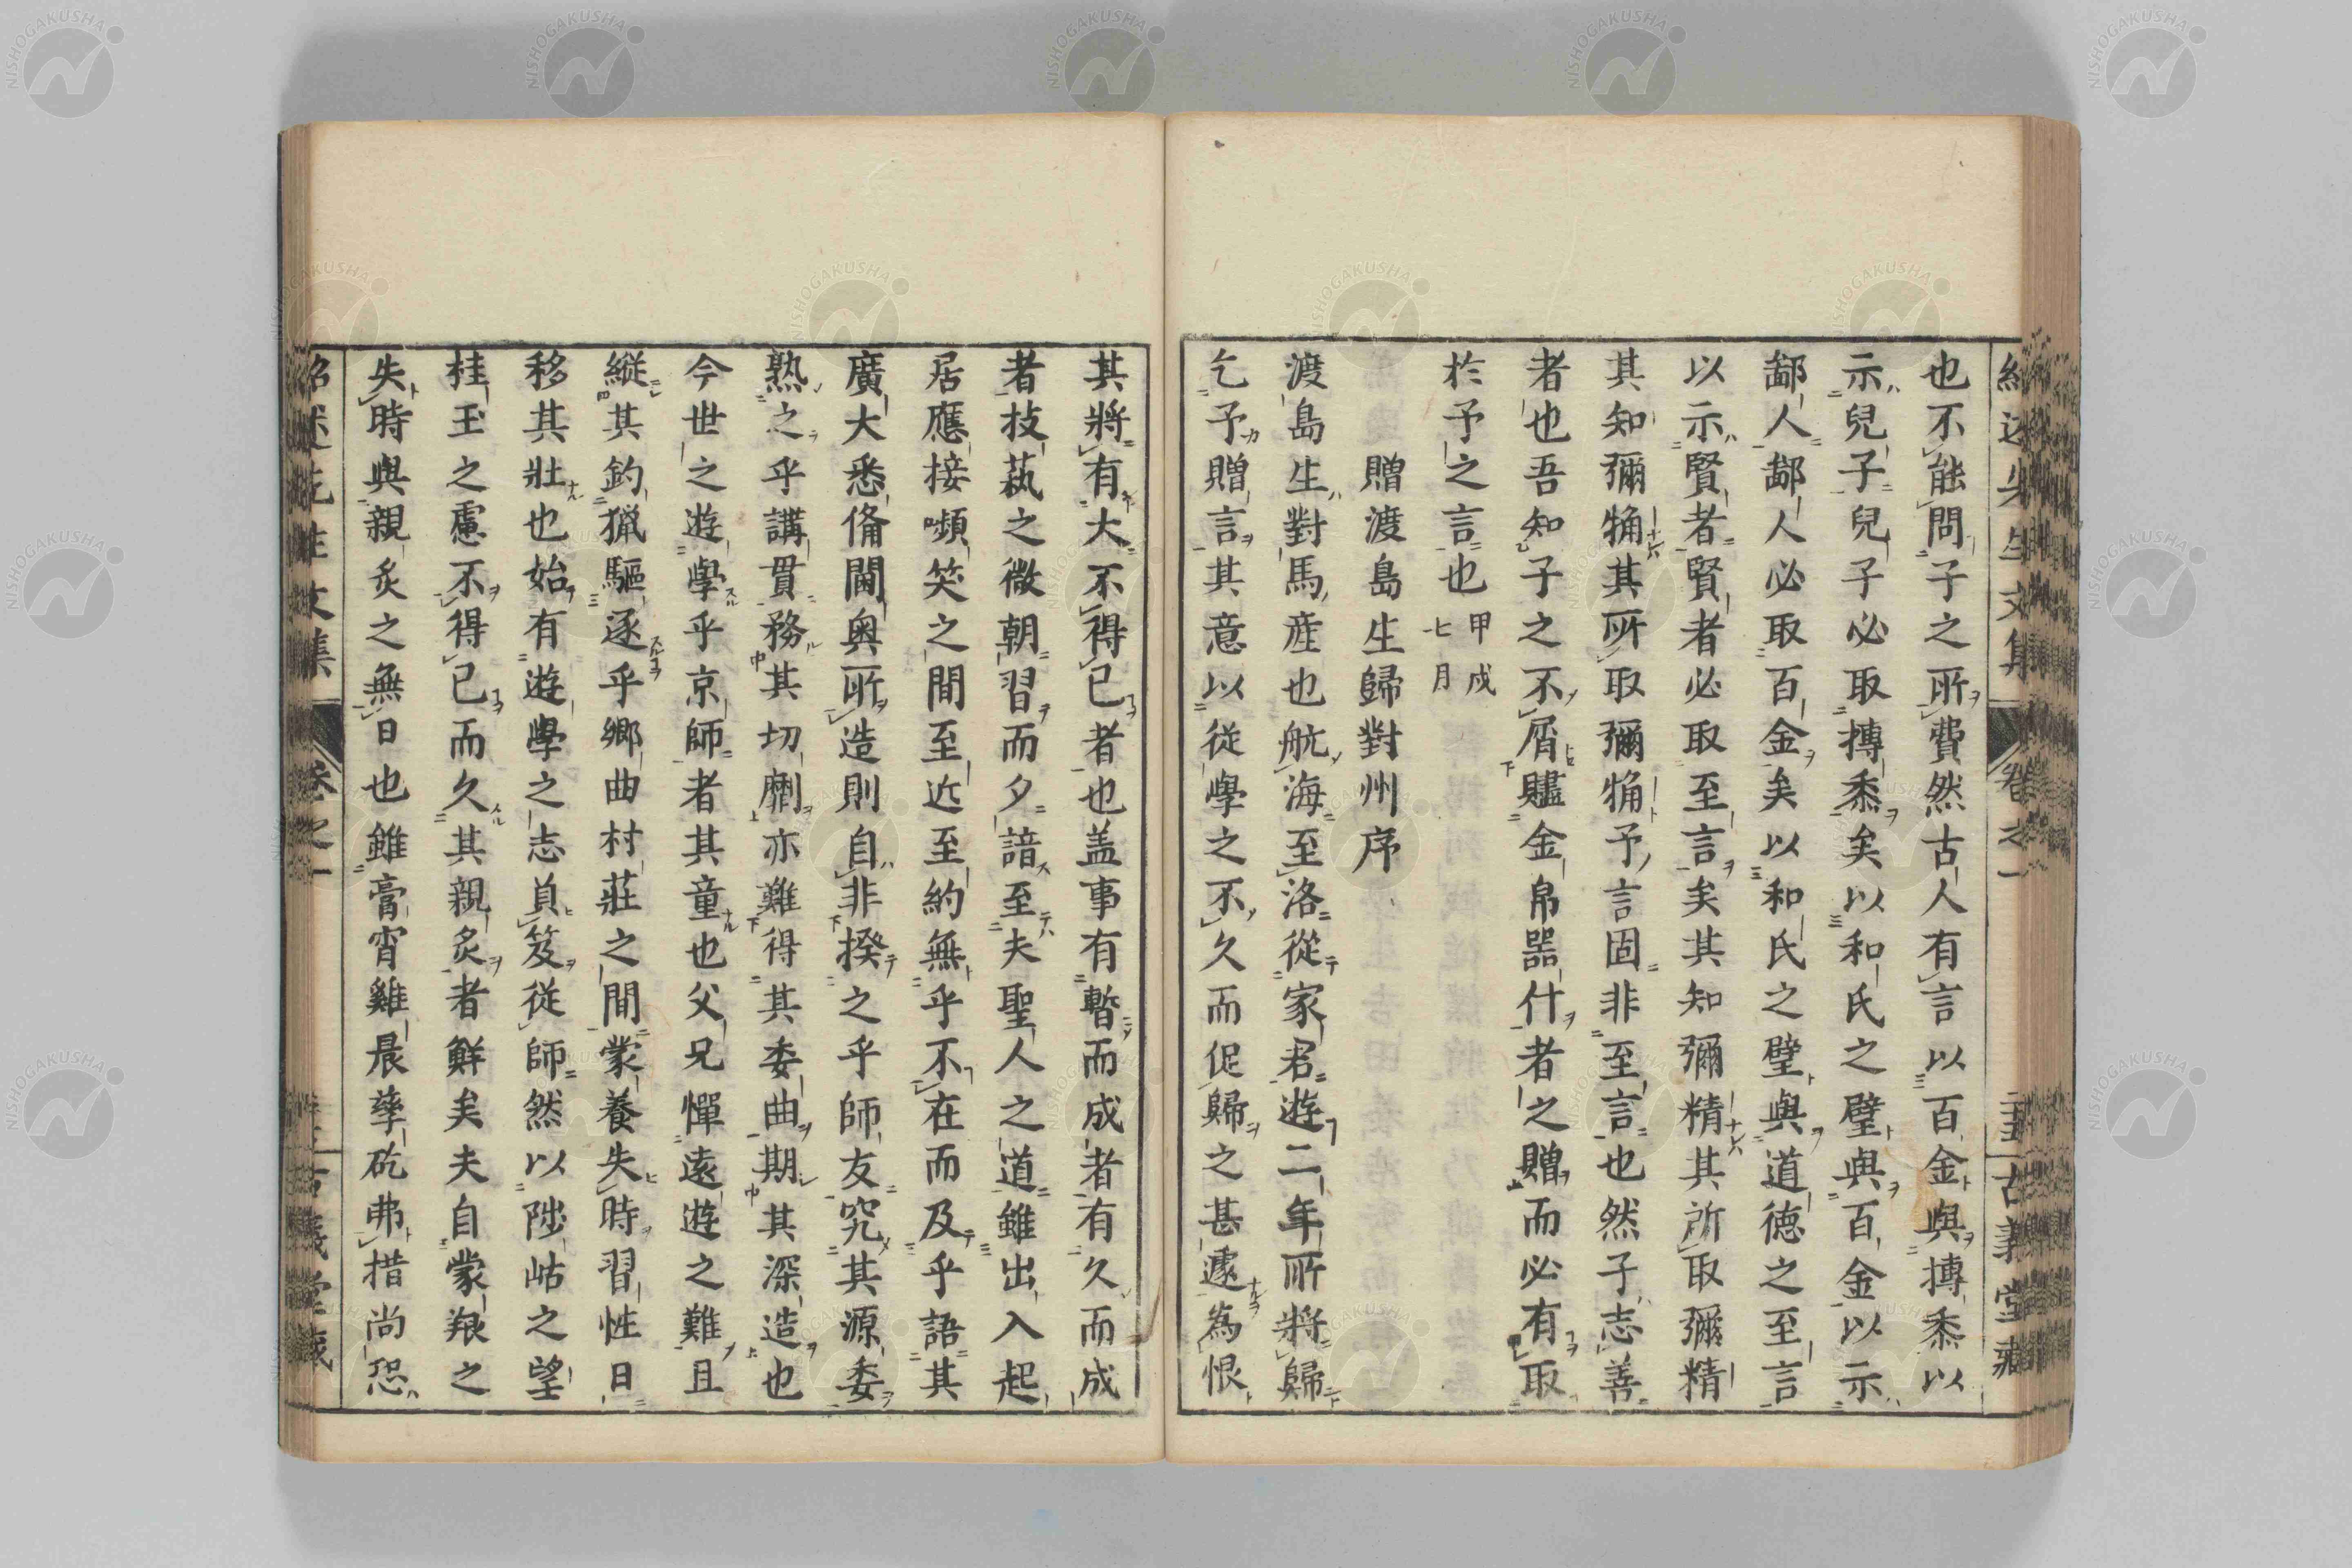 紹述先生文集 卷之一 古義堂藏
也不能問子之所費然古人有言以百金與摶黍以
示兒子兒子必取摶黍矣以和氏之璧與百金以示
鄙人鄙人必取百金矣以和氏之璧與道德之至言
以示賢者賢者必取至言矣其知彌精其所取彌精
其知彌觕其所取彌觕予言固非至言也然子志善
者也吾知子之不屑贐金帛器什者之贈而必有取
於予之言也 甲戌七月
贈渡島生歸對州序
渡島生對馬産也航海至洛從家君遊二年所將歸
乞予贈言其意以從學之不久而促歸之甚遽為恨
其將有大不得已者也盖事有暫而成者有久而成
者技蓺之微朝習而夕諳至夫聖人之道雖出入起
居應接嚬笑之間至近至約無乎不在而及乎語其
廣大悉備閫奥所造則自非揆之乎師友究其源委
熟之乎講貫務其切劘亦難得其委曲期其深造也
今世之遊學乎京師者其童也父兄憚遠遊之難且
縱其釣獵驅逐乎鄉曲村莊之間蒙養失時習性日
移其壯也始有遊學之志負笈從師然以陟岵之望
桂玉之慮不得已而久其親炙者鮮矣夫自蒙養之
失時與親炙之無日也雖膏宵雞晨孳矻弗措尚恐
紹述先生文集 卷之一 古義堂藏